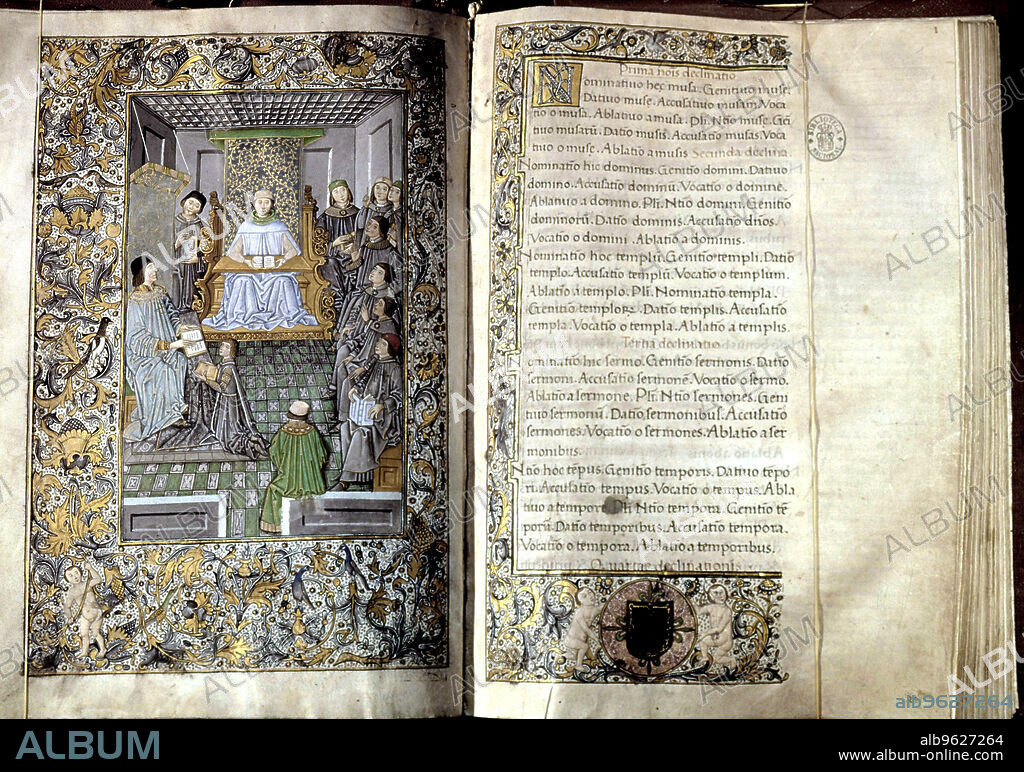 Prima nois declinatio
Nominatiuo hec musa. Genituo muse.
Datiuo muse. Accusatiuo musam. Voca
tio o musa. Ablatiuo a musa. Pli. Ntio muse. Gei
tiuo musarū. Datio musis. Accusatio musas. Voca
tiuo o muse. Ablatio a musis Secunda declina.
Nominatio hic dominus. Genitio domini. Datiuo
domino. Accusatio dominū. Vocatio o domine.
Ablatiuo a domino. Pli. Ntio domini. Genitio
dominorū. Datio dominis. Accusatio dños.
Vocatio o domini. Ablatio a dominis.
Nominatio hoc templū. Genitio templi. Datio
templo. Accusatio templū. Vocatio o templum.
Ablatio a templo. Pli. Nominatio templa.
Genitio templorꝝ. Datio templis. Accusatio
templa. Vocatio o templa. Ablatio a templis.
Tertia declinatio
Nominatio hic sermo. Genitio sermonis. Datio
sermoni. Accusatio sermonē. Vocatio o sermo.
Ablatio a sermone. Pli. Ntio sermones. Geni
tiuo sermonū. Datio sermonibus. Accusatio
sermones. Vocatio o sermones. Ablatio a ser
monibus.
Ntio hoc tēpus. Genitio temporis. Datiuo tēpo
ri. Accusatio tempus. Vocatio o tempus. Abla
tiuo a tempore Pli Ntio tempora. Genitio tē
porū. Datio temporibus. Accusatio tempora.
Vocatio o tempora. Ablatio a temporibus.
Quartae declinationis
BIBLIOTECA NACIONAL
ALBUM
alb9627264
ALBUM
alb9627264
www.album-online.com